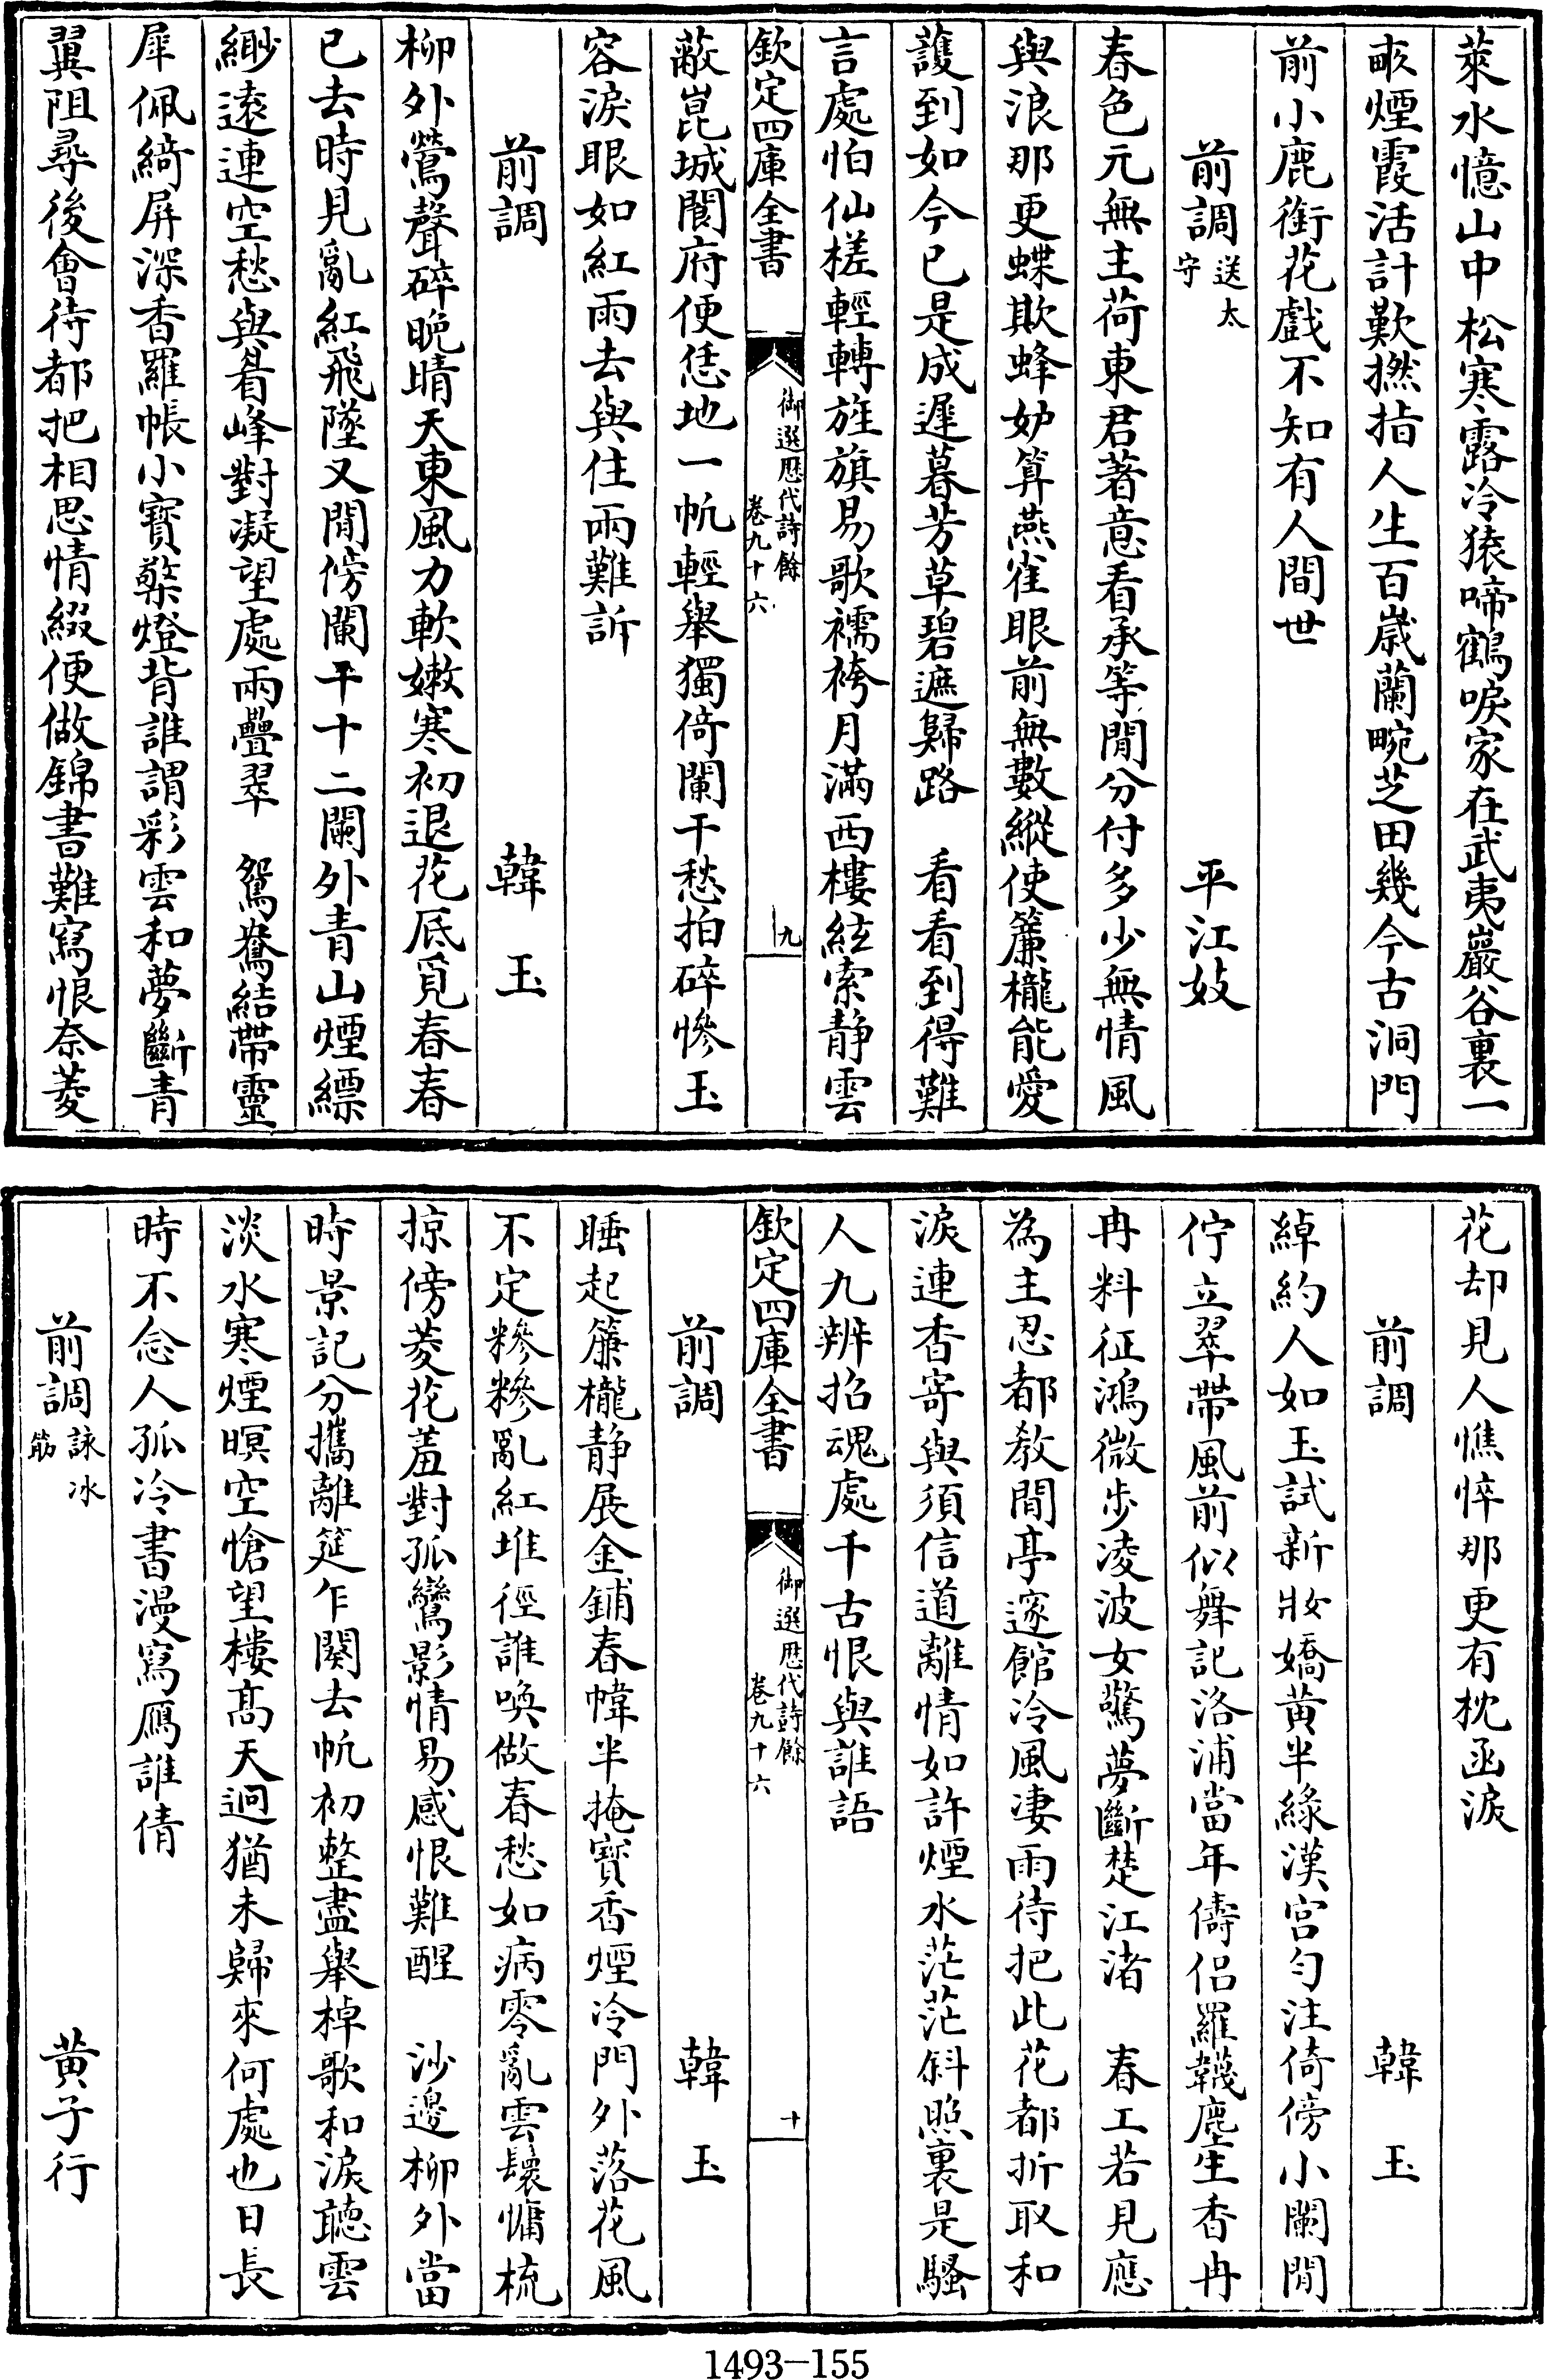 萊水憶山中松寒露冷猿啼鶴唳家在武夷巖谷裏一
畝煙霞活計歎撚指人生百歲蘭畹芝田幾今古洞門
前小鹿銜花戲不知有人間世
前調送太守 平江妓
春色元無主荷東君著意看承等閒分付多少無情風
與浪那更蝶欺蜂妒算燕雀眼前無數縱使簾櫳能愛
護到如今已是成遲暮芳草碧遮歸路 看看到得難
言處怕仙槎輕轉旌旗易歌襦袴月滿西樓絃索静雲
欽定四庫全書 御選歷代詩餘 卷九十六 九
蔽崑城閬府便恁地一帆輕舉獨倚闌干愁拍碎慘玉
容淚眼如紅雨去與住兩難訴
前調 韓玉
柳外鶯聲碎晚晴天東風力軟嫩寒初退花底覓春春
已去時見亂紅飛墜又閒傍闌干十二闌外青山煙縹
緲遠連空愁與眉峰對凝望處兩疊翠 鴛鴦結帶靈
犀佩綺屏深香羅帳小寶檠燈背誰謂彩雲和夢斷青
翼阻尋後會待都把相思情綴便做錦書難寫恨奈菱
花却見人憔悴那更有枕函淚
前調 韓玉
綽約人如玉試新妝嬌黄半緣漢宫勻注倚傍小闌閒
佇立翠帶風前似舞記洛浦當年儔侶羅韈塵生香冉
冉料征鴻微步凌波女驚夢斷楚江渚 春工若見應
為主忍都教閒亭邃館冷風凄雨待把此花都折取和
淚連香寄與須信道離情如許煙水茫茫斜照裏是騷
人九辨招魂處千古恨與誰語
欽定四庫全書 御選歷代詩餘 卷九十六 十
前調 韓玉
睡起簾櫳静展金鋪春幃半掩寳香煙冷門外落花風
不定糝糝亂紅堆徑誰喚做春愁如病零亂雲鬟慵梳
掠傍菱花羞對孤鸞影情易感恨難醒 沙邊柳外當
時景記分攜離筵乍闋去帆初整盡舉棹歌和淚聽雲
淡水寒煙暝空愴望樓高天迥猶未歸來何處也日長
時不念人孤冷書漫寫雁誰倩
前調詠冰筯 黄子行
1493—155